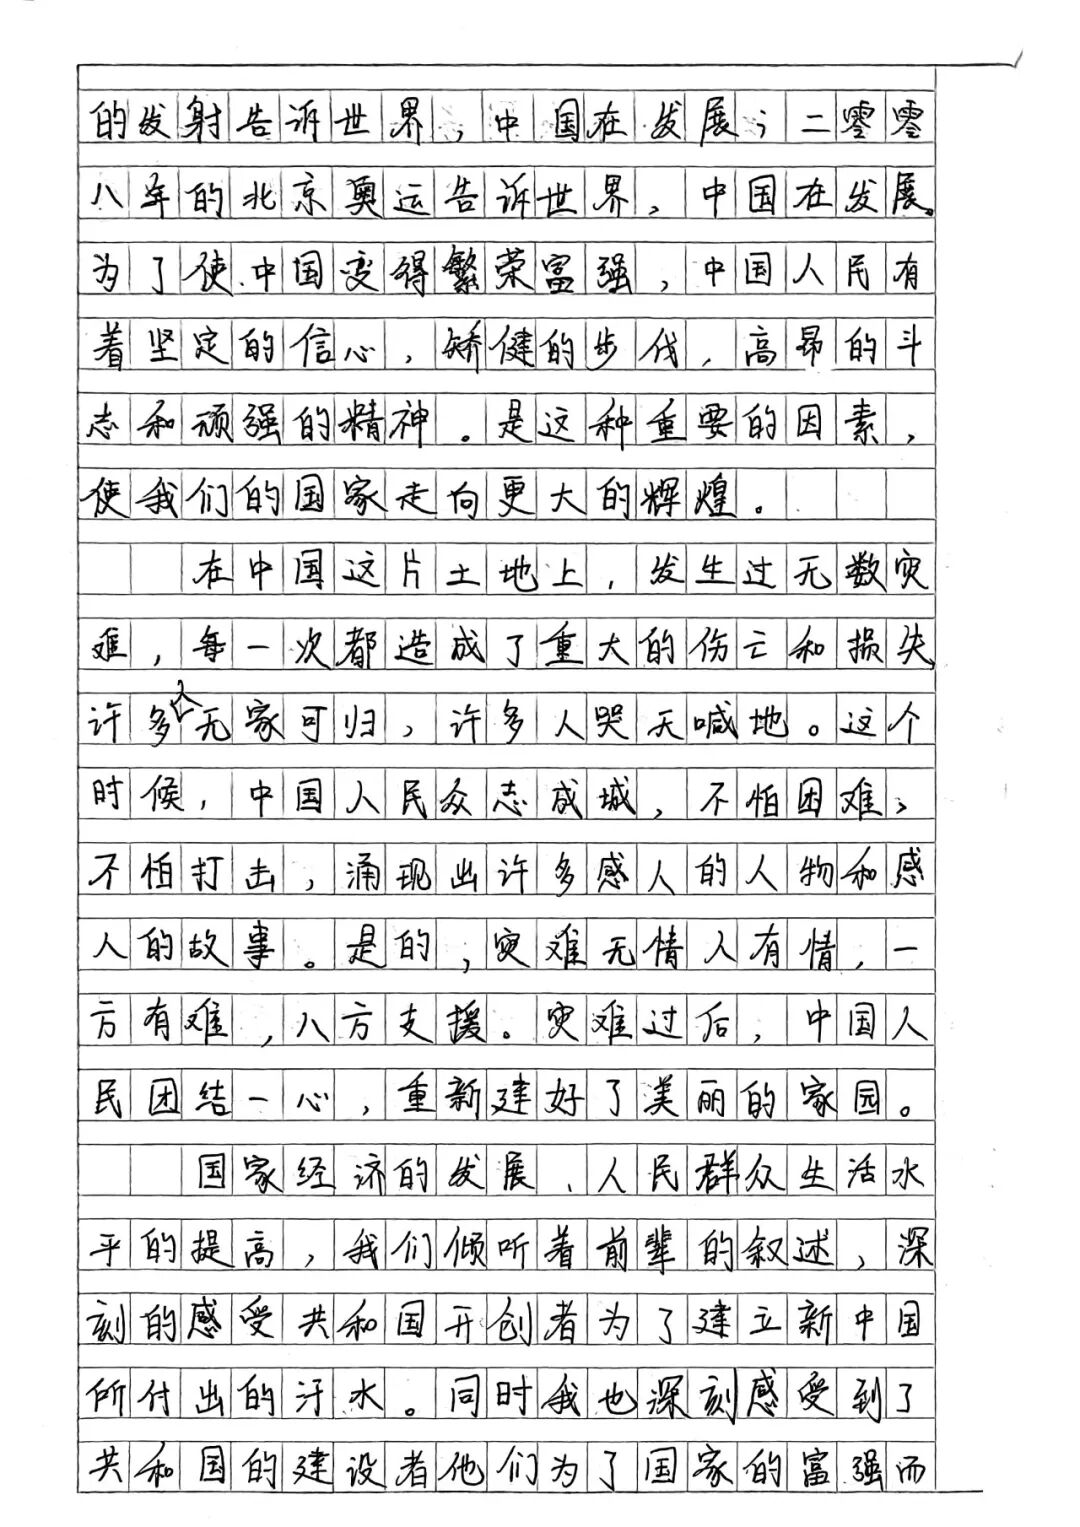 的发射告诉世界，中国在发展；二零零
八年的北京奥运告诉世界，中国在发展。
为了使中国变得繁荣富强，中国人民有
着坚定的信心，矫健的步伐，高昂的斗
志和顽强的精神。是这种重要的因素，
使我们的国家走向更大的辉煌。
在中国这片土地上，发生过无数灾
难，每一次都造成了重大的伤亡和损失，
许多人无家可归，许多人哭天喊地。这个
时候，中国人民众志成城，不怕困难、
不怕打击，涌现出许多感人的人物和感
人的故事。是的，灾难无情人有情，一
方有难，八方支援。灾难过后，中国人
民团结一心，重新建好了美丽的家园。
国家经济的发展、人民群众生活水
平的提高，我们倾听着前辈的叙述，深
刻的感受共和国开创者为了建立新中国
所付出的汗水。同时我也深刻感受到了
共和国的建设者他们为了国家的富强而